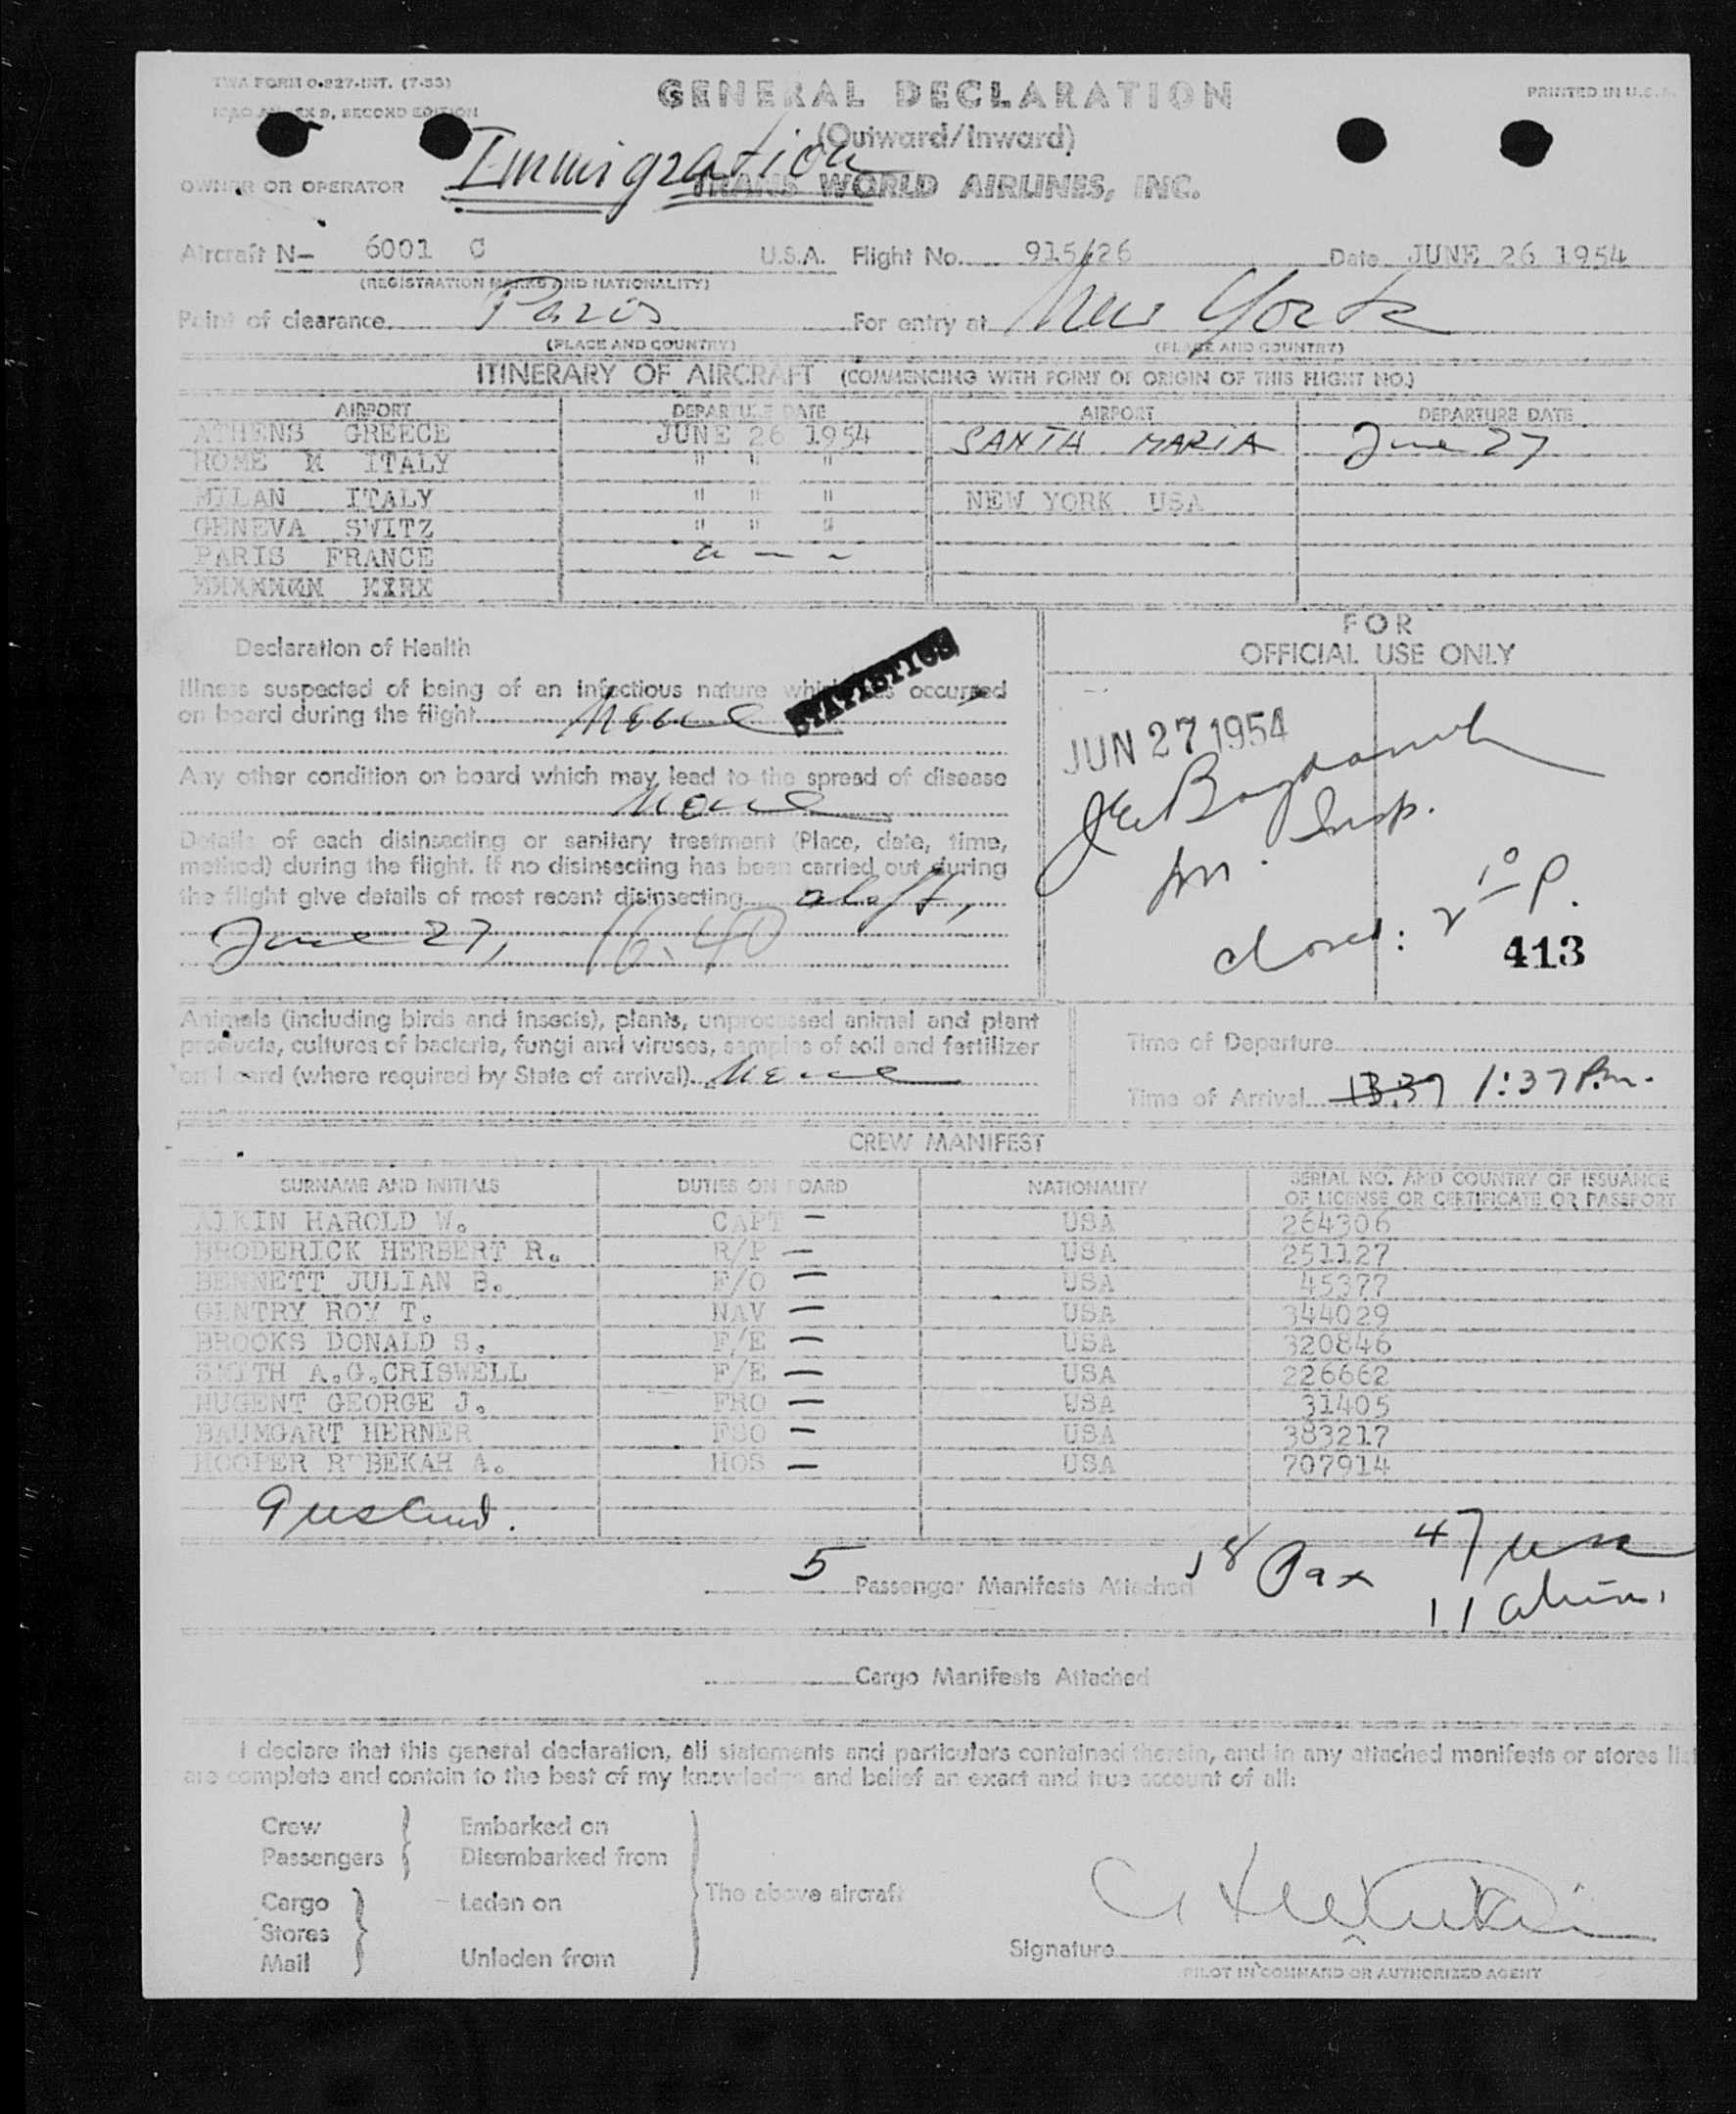 TWA FORM O-827-INT. (7-53)
GENERAL DECLARATION
PRINTED IN U.S.A.
ICAO ANNEX 9, SECOND EDITION
(Outward/Inward)
Immigration
OWNER OR OPERATOR TRANS WORLD AIRLINES, INC.
Aircraft N- 6001 C U.S.A. Flight No. 915/26 Date JUNE 26 1954
(REGISTRATION MARKS AND NATIONALITY)
Point of clearance Paris For entry at New York
(PLACE AND COUNTRY) (PLACE AND COUNTRY)
ITINERARY OF AIRCRAFT (COMMENCING WITH POINT OF ORIGIN OF THIS FLIGHT NO.)
AIRPORT DEPARTURE DATE AIRPORT DEPARTURE DATE
ATHENS GREECE JUNE 26 1954 SANTA MARIA June 27
ROME ITALY " " "
MILAN ITALY " " " NEW YORK USA
GENEVA SWITZ " " "
PARIS FRANCE
FOR
OFFICIAL USE ONLY
Declaration of Health
STATISTICS
Illness suspected of being of an infectious nature which has occurred
on board during the flight None
Any other condition on board which may lead to the spread of disease
None
Details of each disinsecting or sanitary treatment (Place, date, time,
method) during the flight. If no disinsecting has been carried out during
the flight give details of most recent disinsecting aloft,
June 27, 16:40
JUN 27 1954
Insp.
closed: 2 10 P.
413
Animals (including birds and insects), plants, unprocessed animal and plant
products, cultures of bacteria, fungi and viruses, samples of soil and fertilizer
on board (where required by State of arrival). None
Time of Departure
Time of Arrival 13:37 1:37 P.m.
CREW MANIFEST
SURNAME AND INITIALS DUTIES ON BOARD NATIONALITY SERIAL NO. AND COUNTRY OF ISSUANCE
OF LICENSE OR CERTIFICATE OR PASSPORT
AIKIN HAROLD W. CAPT — USA 264306
BRODERICK HERBERT R. R/P — USA 251127
BENNETT JULIAN B. F/O — USA 45377
GENTRY ROY T. NAV — USA 344029
BROOKS DONALD S. F/E — USA 320846
SMITH A.G.CRISWELL F/E — USA 226662
NUGENT GEORGE J. FRO — USA 31405
BAUMGART HERNER FSO — USA 383217
HOOPER REBEKAH A. HOS — USA 707914
5 Passenger Manifests Attached 58 Pax 47 usc
11 aliens
Cargo Manifests Attached
I declare that this general declaration, all statements and particulars contained therein, and in any attached manifests or stores list
are complete and contain to the best of my knowledge and belief an exact and true account of all:
Crew Embarked on
Passengers Disembarked from
The above aircraft
Cargo Laden on
Stores
Mail Unladen from
Signature
PILOT IN COMMAND OR AUTHORIZED AGENT